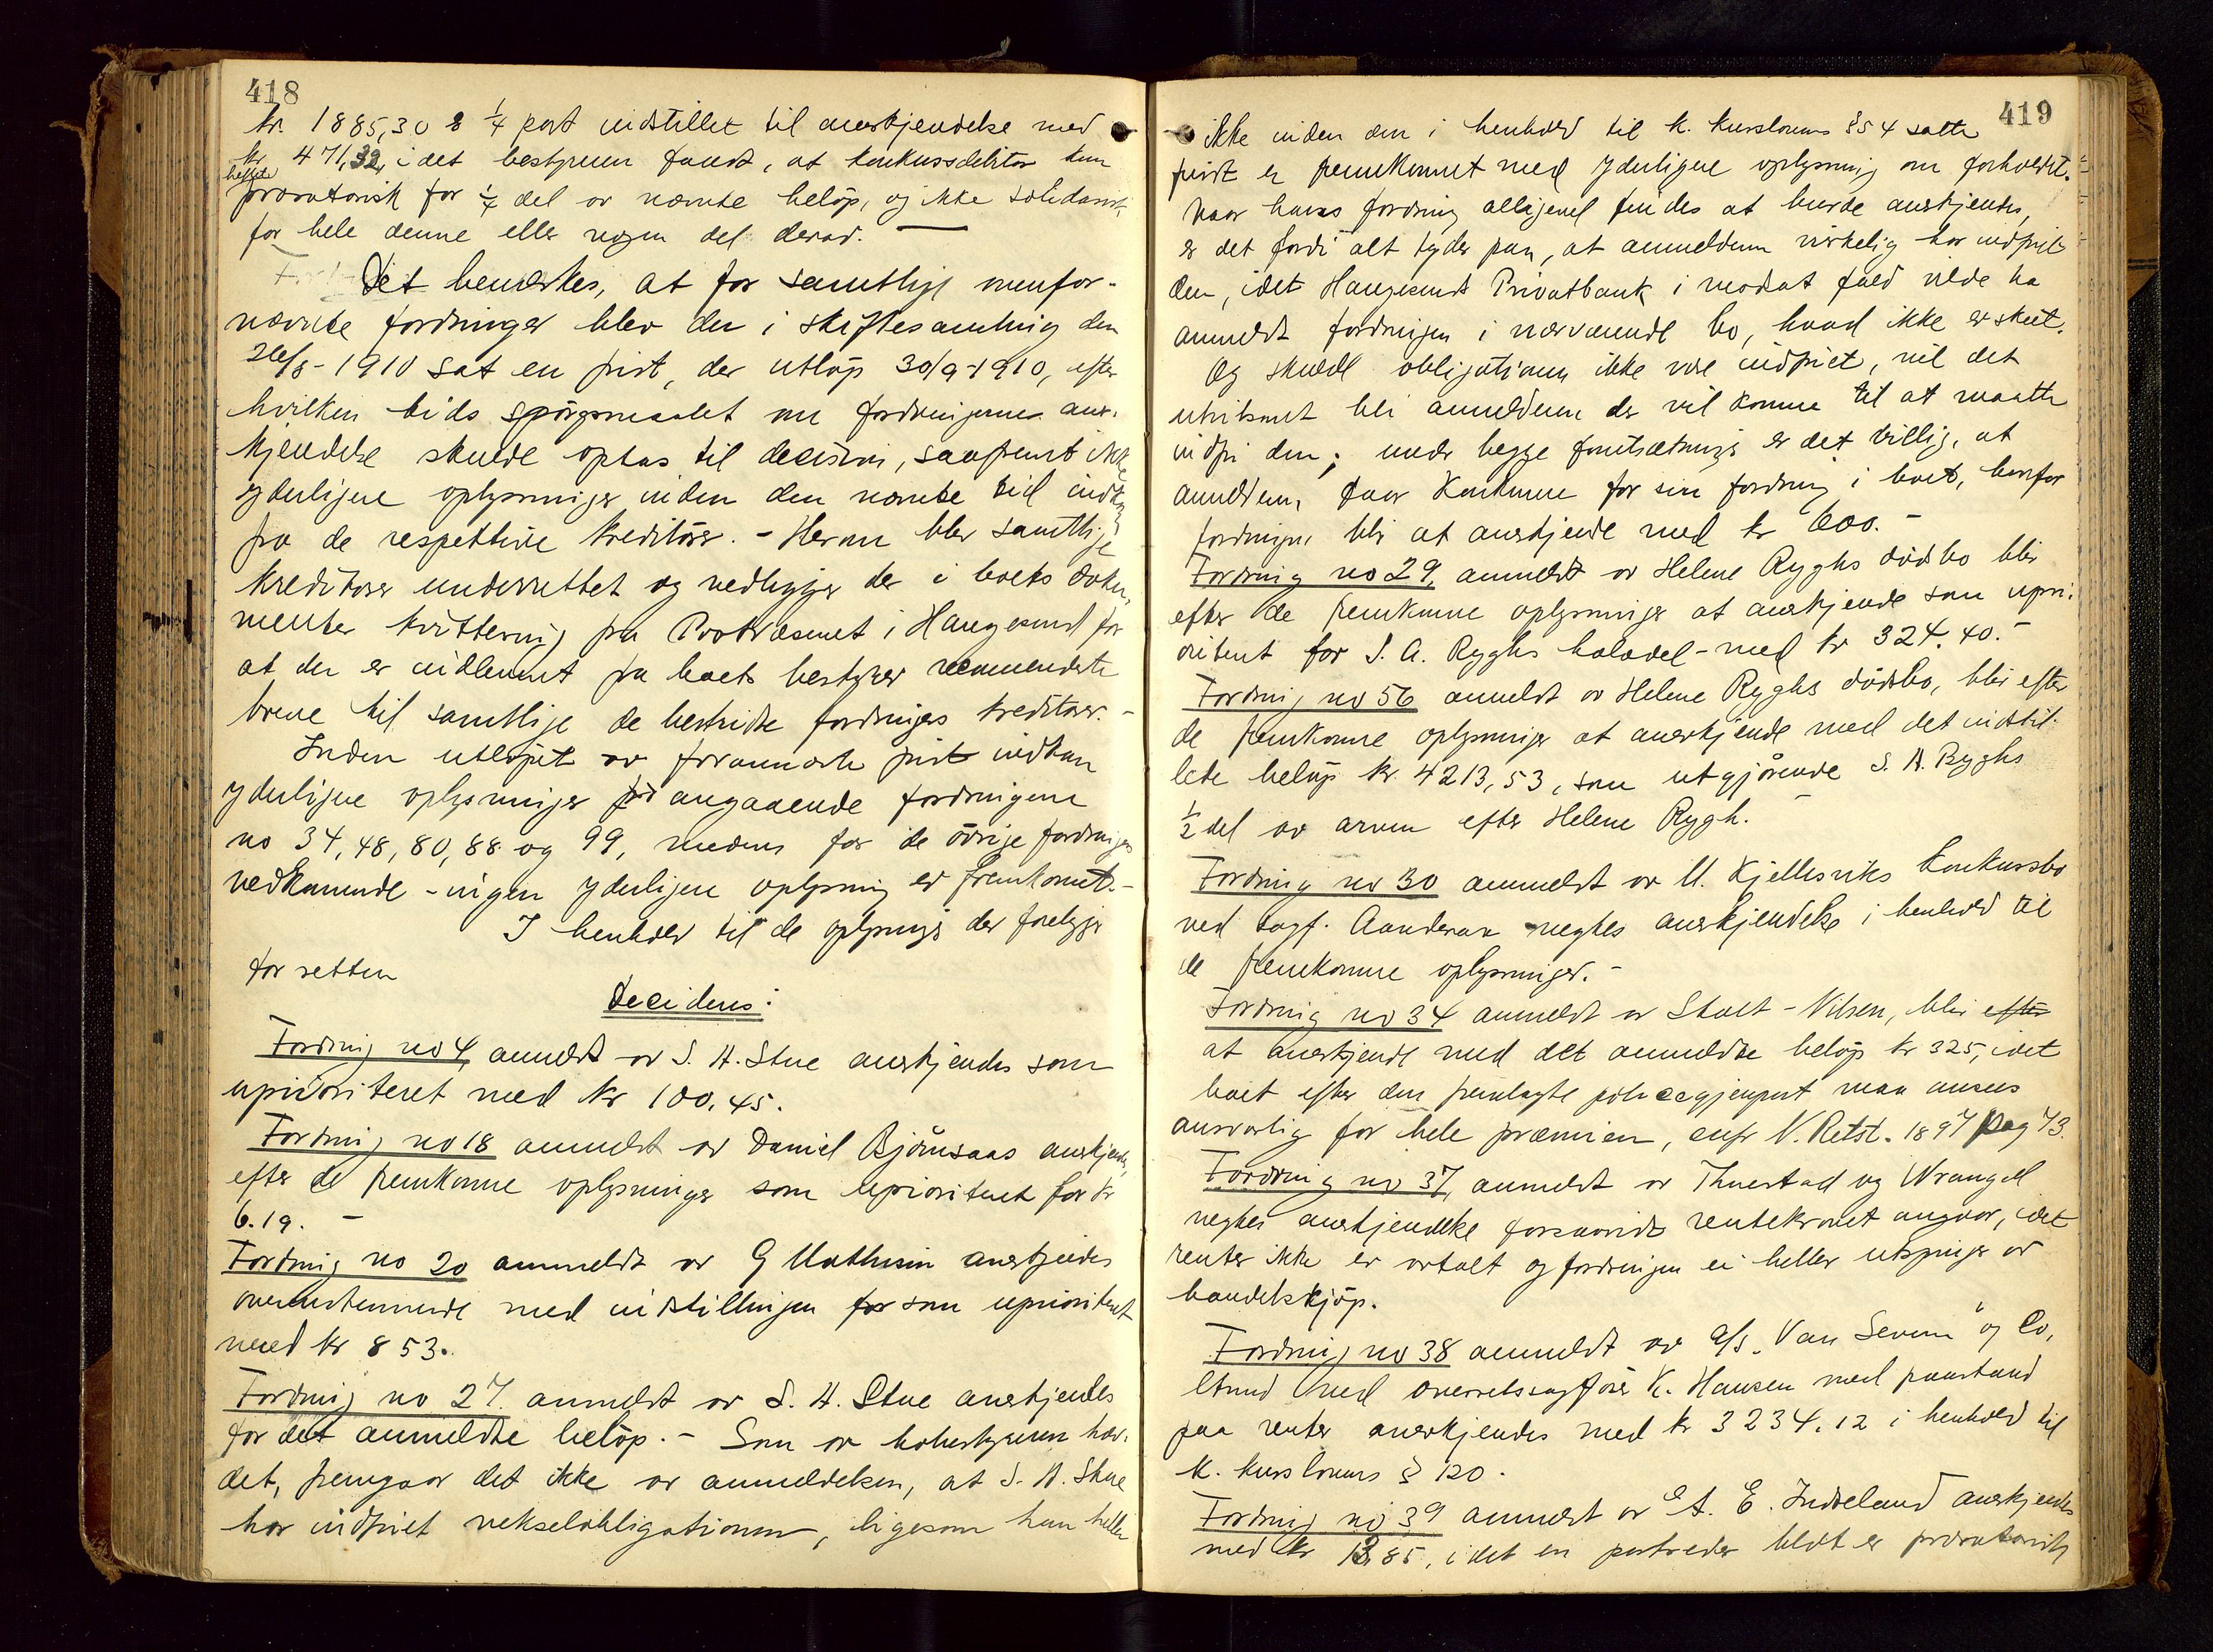 418
kr. 1885,30 á 1/4 part indstillet til anerkjendelse med
kr 471,32, idet bestyreren fandt, at konkursdebitor kun
heftet
proratarisk for 1/4 del av nævnte beløp, og ikke solidarisk
for hele denne eller nogen del derav. —
Det bemerkes, at for samtlige ovenfor-
nævnte fordringer blev der i skiftesamling den
26/8-1910 sat en frist, der utløp 30/9-1910, efter
hvilken tids spørgsmaalet om fordringernes aner-
kjendelse skulde optas til decision, saafremt ikke
yderligere oplysninger inden den nævnte tid indkom
fra de respektive kreditorer. - Herom blev samtlige
kreditorer underrettet og vedligger der i boets doku-
menter kvittering fra Postvæsenet i Haugesund for
at der er indlevert fra boets bestyrer recommenderte
breve til samtlige de bestridte fordringers kreditorer. -
Inden utløpet av forannævnte frist indkom
yderligere oplysninger angaaende fordringerne
no 34, 48, 80, 88 og 99, medens for de øvrige fordringers
vedkommende - ingen yderligere oplysning er fremkommet. -
I henhold til de oplysninger der foreligger
for retten
Decideres:
Fordring no 4, anmeldt av S. A. Stue anerkjendes som
uprioriteret med kr 100.45.
Fordring no 18 anmeldt av Daniel Bjørnsaas anerkjendes,
efter de fremkomne oplysninger som uprioritert for kr
6.19. —
Fordring no 20 anmeldt av G Mathisen anerkjendes
overensstemmende med indstillingen for som uprioritert
med kr 853.
Fordring no 27. anmeldt av S. A. Stue anerkjendes
for det anmeldte beløp. - Som av bobestyreren hæv-
det, fremgaar det ikke av anmeldelsen, at S. A. Stue
har indfriet vekselobligationen, ligesom han heller
419
ikke inden den i henhold til K. kurslovens § 54 satte
frist er fremkommet med yderligere oplysning om forholdet.
Naar hans fordring alligevel findes at burde anerkjendes,
er det fordi alt tyder paa, at anmelderen virkelig har indfriet
den, idet Haugesunds Privatbank i motsat fald vilde ha
anmeldt fordringen i nærværende bo, hvad ikke er skeet.
Og skulde obligationen ikke være indfriet, vil det
utvilsomt bli anmelderen der vil komme til at maatte
indfri den; under begge forutsætninger er det billig, at
anmelderen faar konkurrere for sin fordring i boet, hvorfor
fordringen blir at anerkjende med kr 600. -
Fordring no 29, anmeldt av Helene Ryghs dødsbo blir
efter de fremkomne oplysninger at anerkjende som upri-
oritert for S. A. Ryghs halvdel - med kr 324.40. -
Fordring no 56 anmeldt av Helene Ryghs dødsbo, blir efter
de fremkomne oplysninger at anerkjende med det indstil-
lete beløp kr. 4213,53, som utgjørende S. A. Ryghs
1/2 del av arven efter Helene Rygh. -
Fordring no 30 anmeldt av M. Kjellesviks konkursbo
ved sagf. Aanderaa negtes anerkjendelse i henhold til
de fremkomne oplysninger. -
Fordring no 34 anmeldt av Stolt-Nilsen, blir efter
at anerkjende med det anmeldte beløp kr 325, idet
boet efter den fremlagte policegjenpart maa ansees
ansvarlig for hele præmien, cnfr N. Retst. 1897 pag 73.
Fordring no 37, anmeldt av Thuestad og Wrangel
negtes anerkjendelse forsaavidt rentekravet angaar, idet
renter ikke er avtalt og fordringen ei heller utspringer av
handelskjøp.
Fordring no 38 anmeldt av A/S "Van Severen" og Co,
ved overretssagfører K. Hansen med paastand
paa renter anerkjendes med kr 3234.12 i henhold til
K. kurslovens § 120.
Fordring no 39 anmeldt av E. Indreland anerkjendes
med kr 85, idet en partreder blot er proratarisk